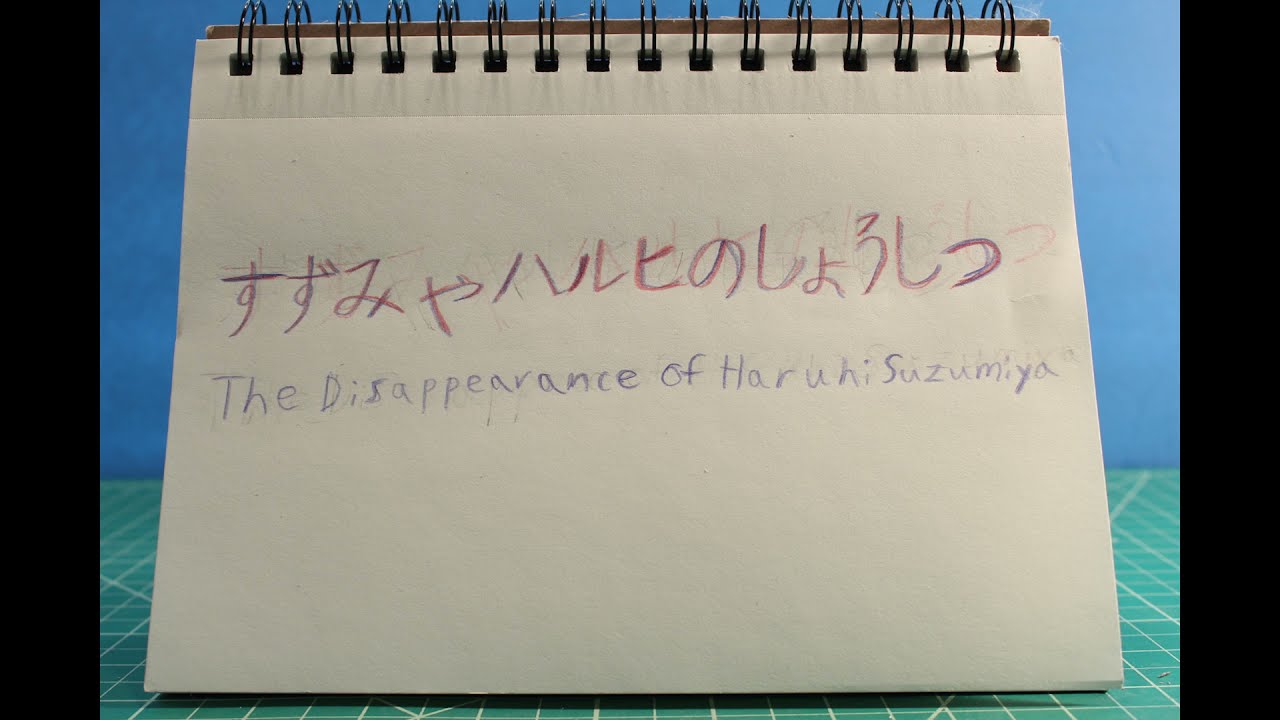 すずみやハルヒのしょうしつ
The Disappearance of Haruhi Suzumiya